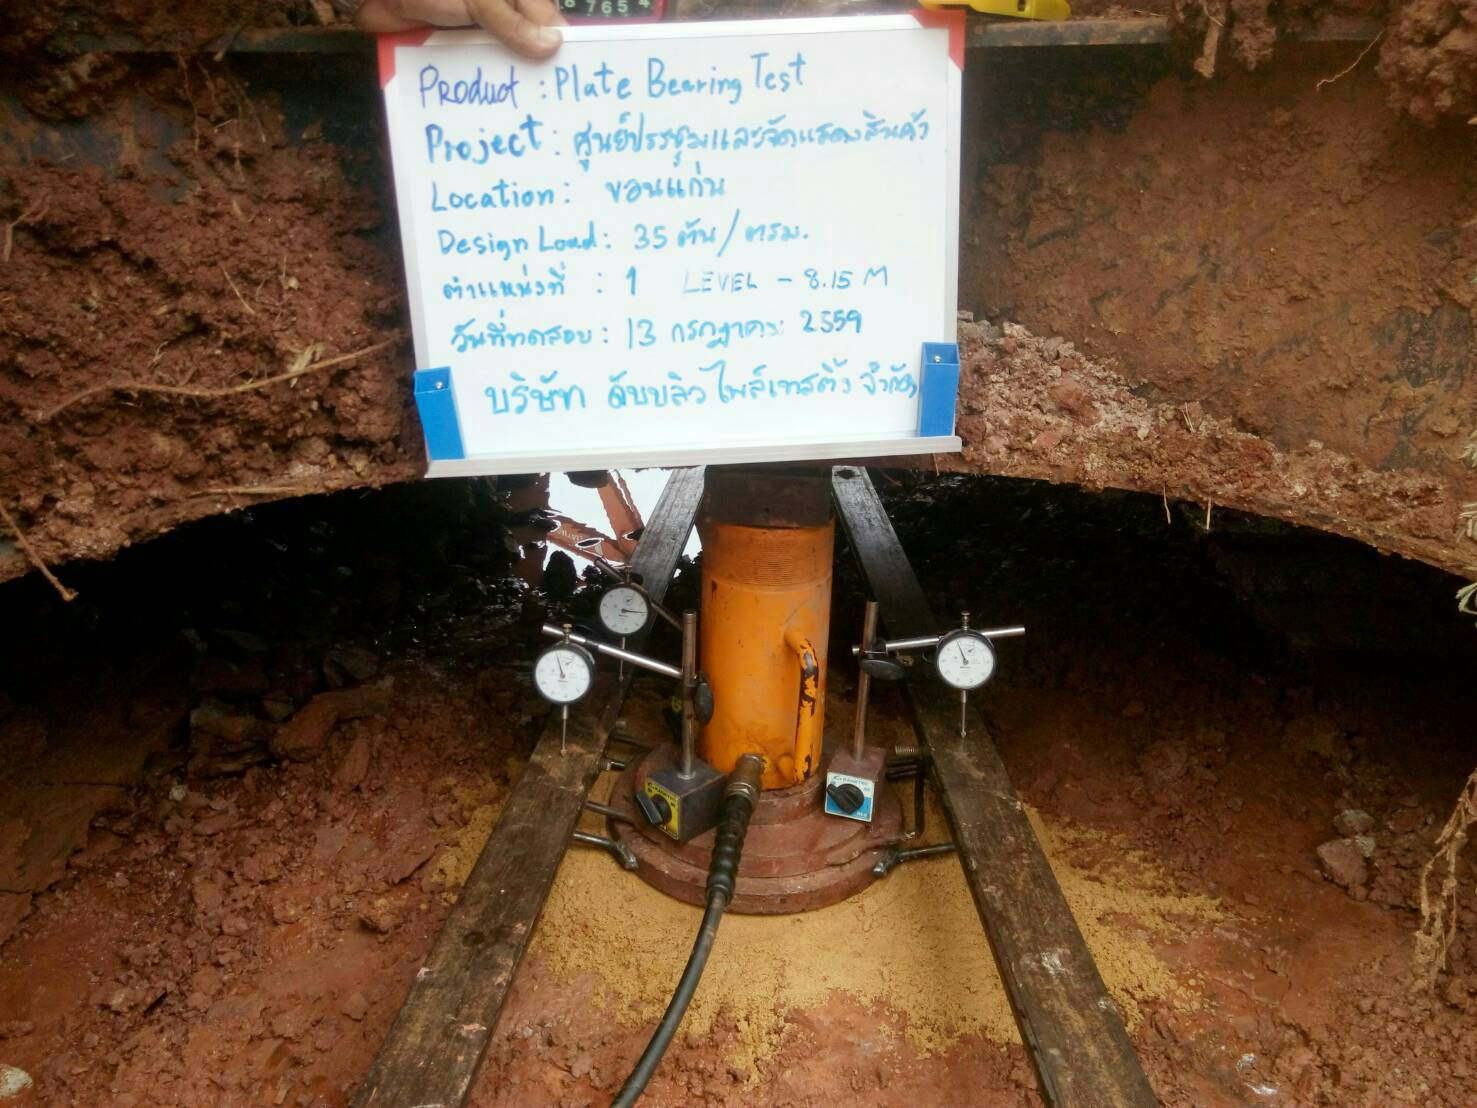 8 7 6 5 4
Product : Plate Bearing Test
Project : ศูนย์ประชุมและจัดแสดงสินค้า
Location : ขอนแก่น
Design Load : 35 ตัน/ตรม.
ตำแหน่งที่ : 1 LEVEL - 8.15 M
วันที่ทดสอบ : 13 กรกฎาคม 2559
บริษัท ดับบลิว ไพล์เทสติ้ง จำกัด